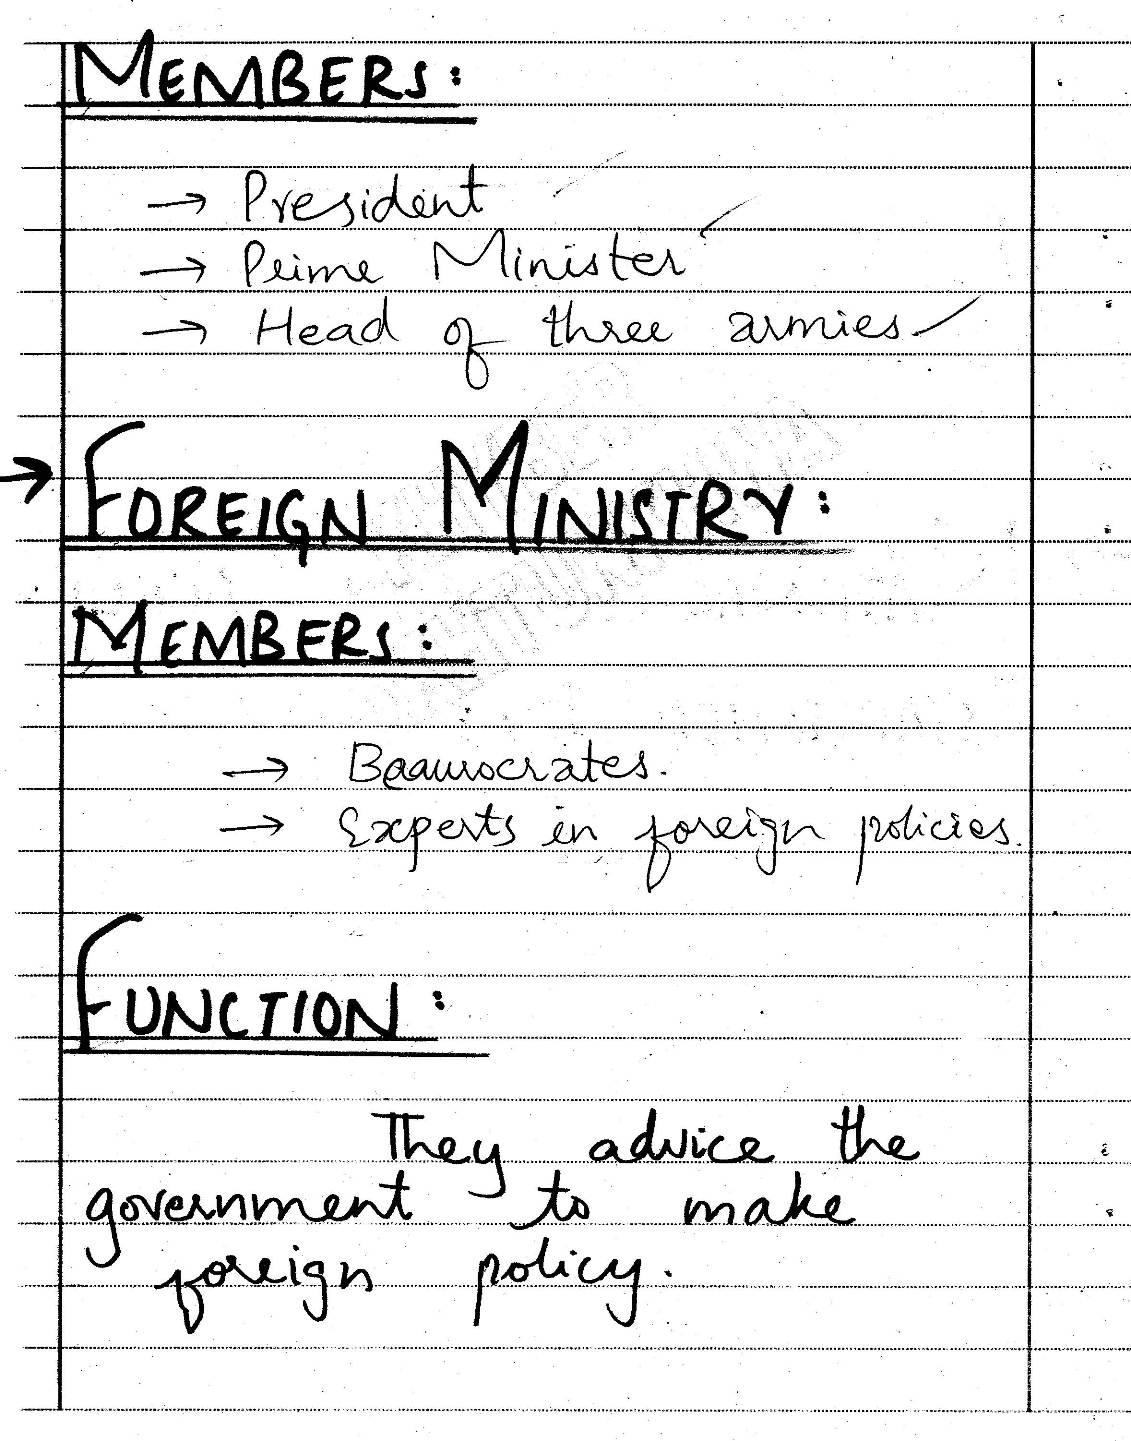 MEMBERS:
→ President
→ Prime Minister
→ Head of three armies
→ FOREIGN MINISTRY:
MEMBERS:
→ Beaurocrates.
→ Experts in foreign policies.
FUNCTION:
They advice the
government to make
foreign policy.